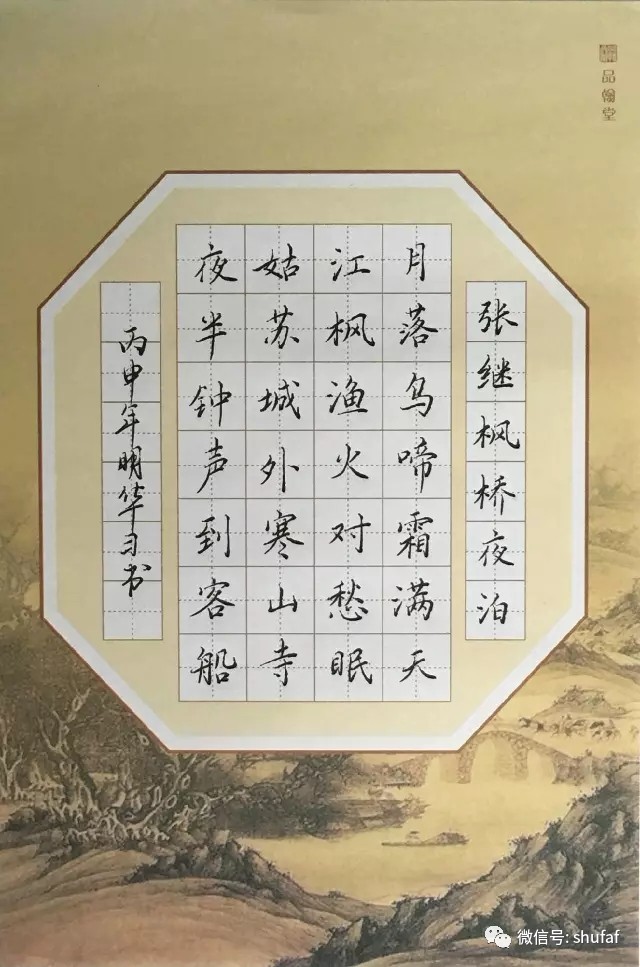 张继枫桥夜泊
月落乌啼霜满天
江枫渔火对愁眠
姑苏城外寒山寺
夜半钟声到客船
丙申年明华习书
品翰堂
微信号: shufaf